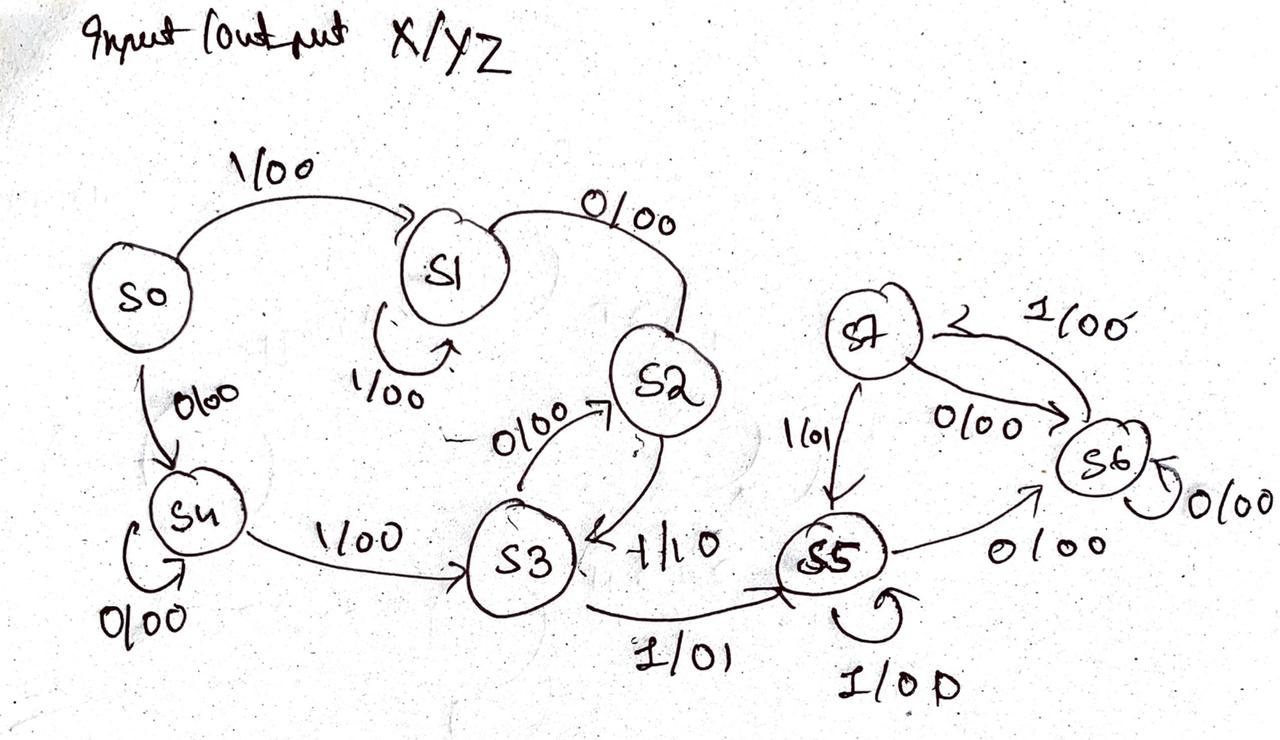 Input/output X/YZ
1/00
0/00
S0
S1
1/00
0/00
S2
S7
1/00
0/00
1/01
0/00
S6
0/00
S4
1/00
0/00
S3
1/10
S5
0/00
1/01
1/00